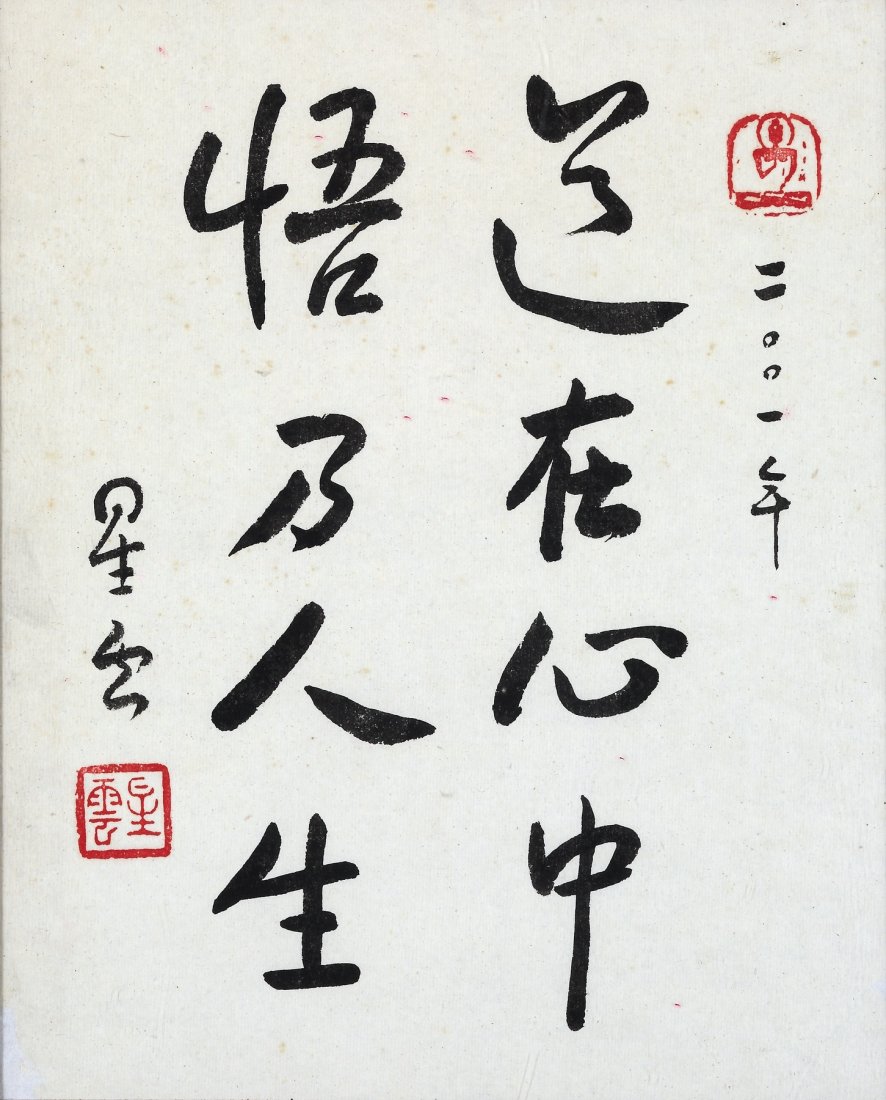 二〇〇一年
道在心中
悟乃人生
星云
星雲